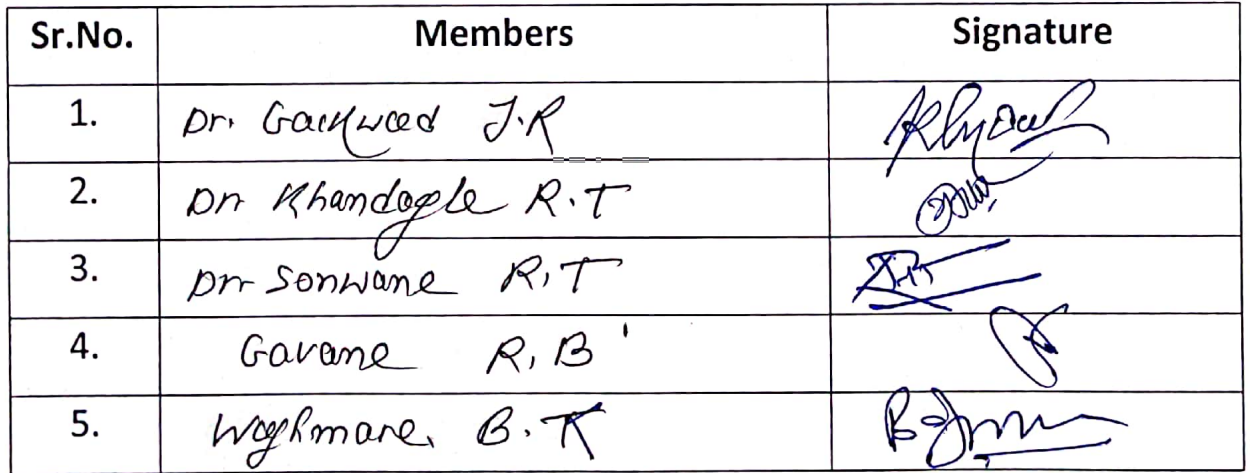 Sr.No. Members Signature
1. Dr. Gaikwad J.R
2. Dr Khandagle R.T
3. Dr Sonwane R.T
4. Gavane R.B
5. Waghmare. B.K